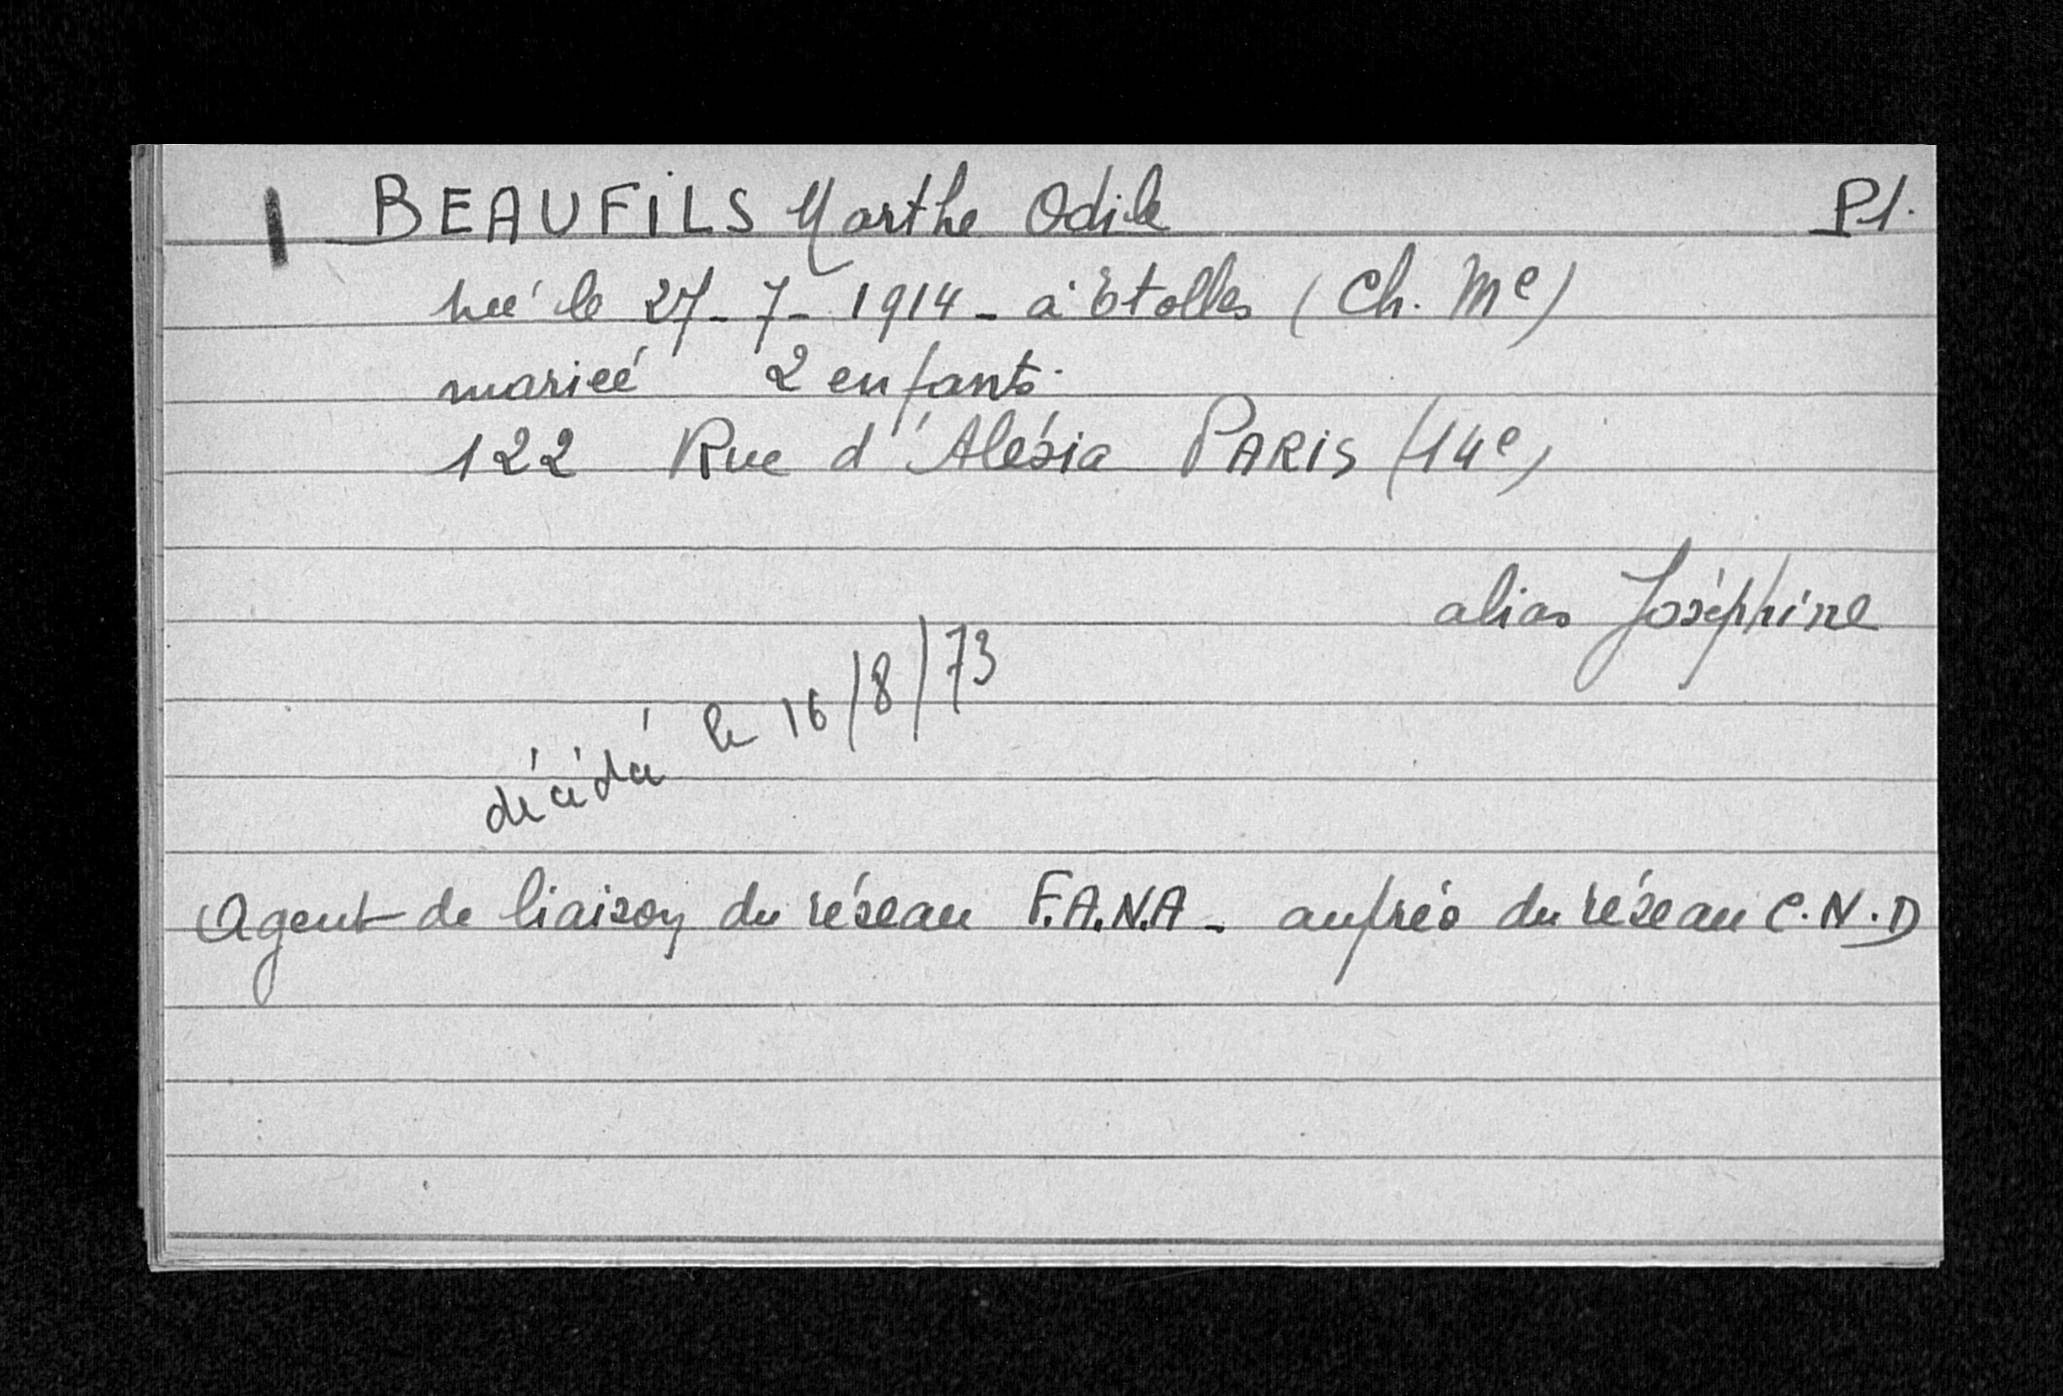 BEAUFILS Marthe Odile P1.
née le 27-7-1914 - à Etolles (Ch. Me)
mariée 2 enfants.
122 Rue d'Alésia PARIS (14e)
alias Joséphine
décédée le 16/8/73
Agent de liaison du réseau F.A.N.A - auprés du réseau C.N.D